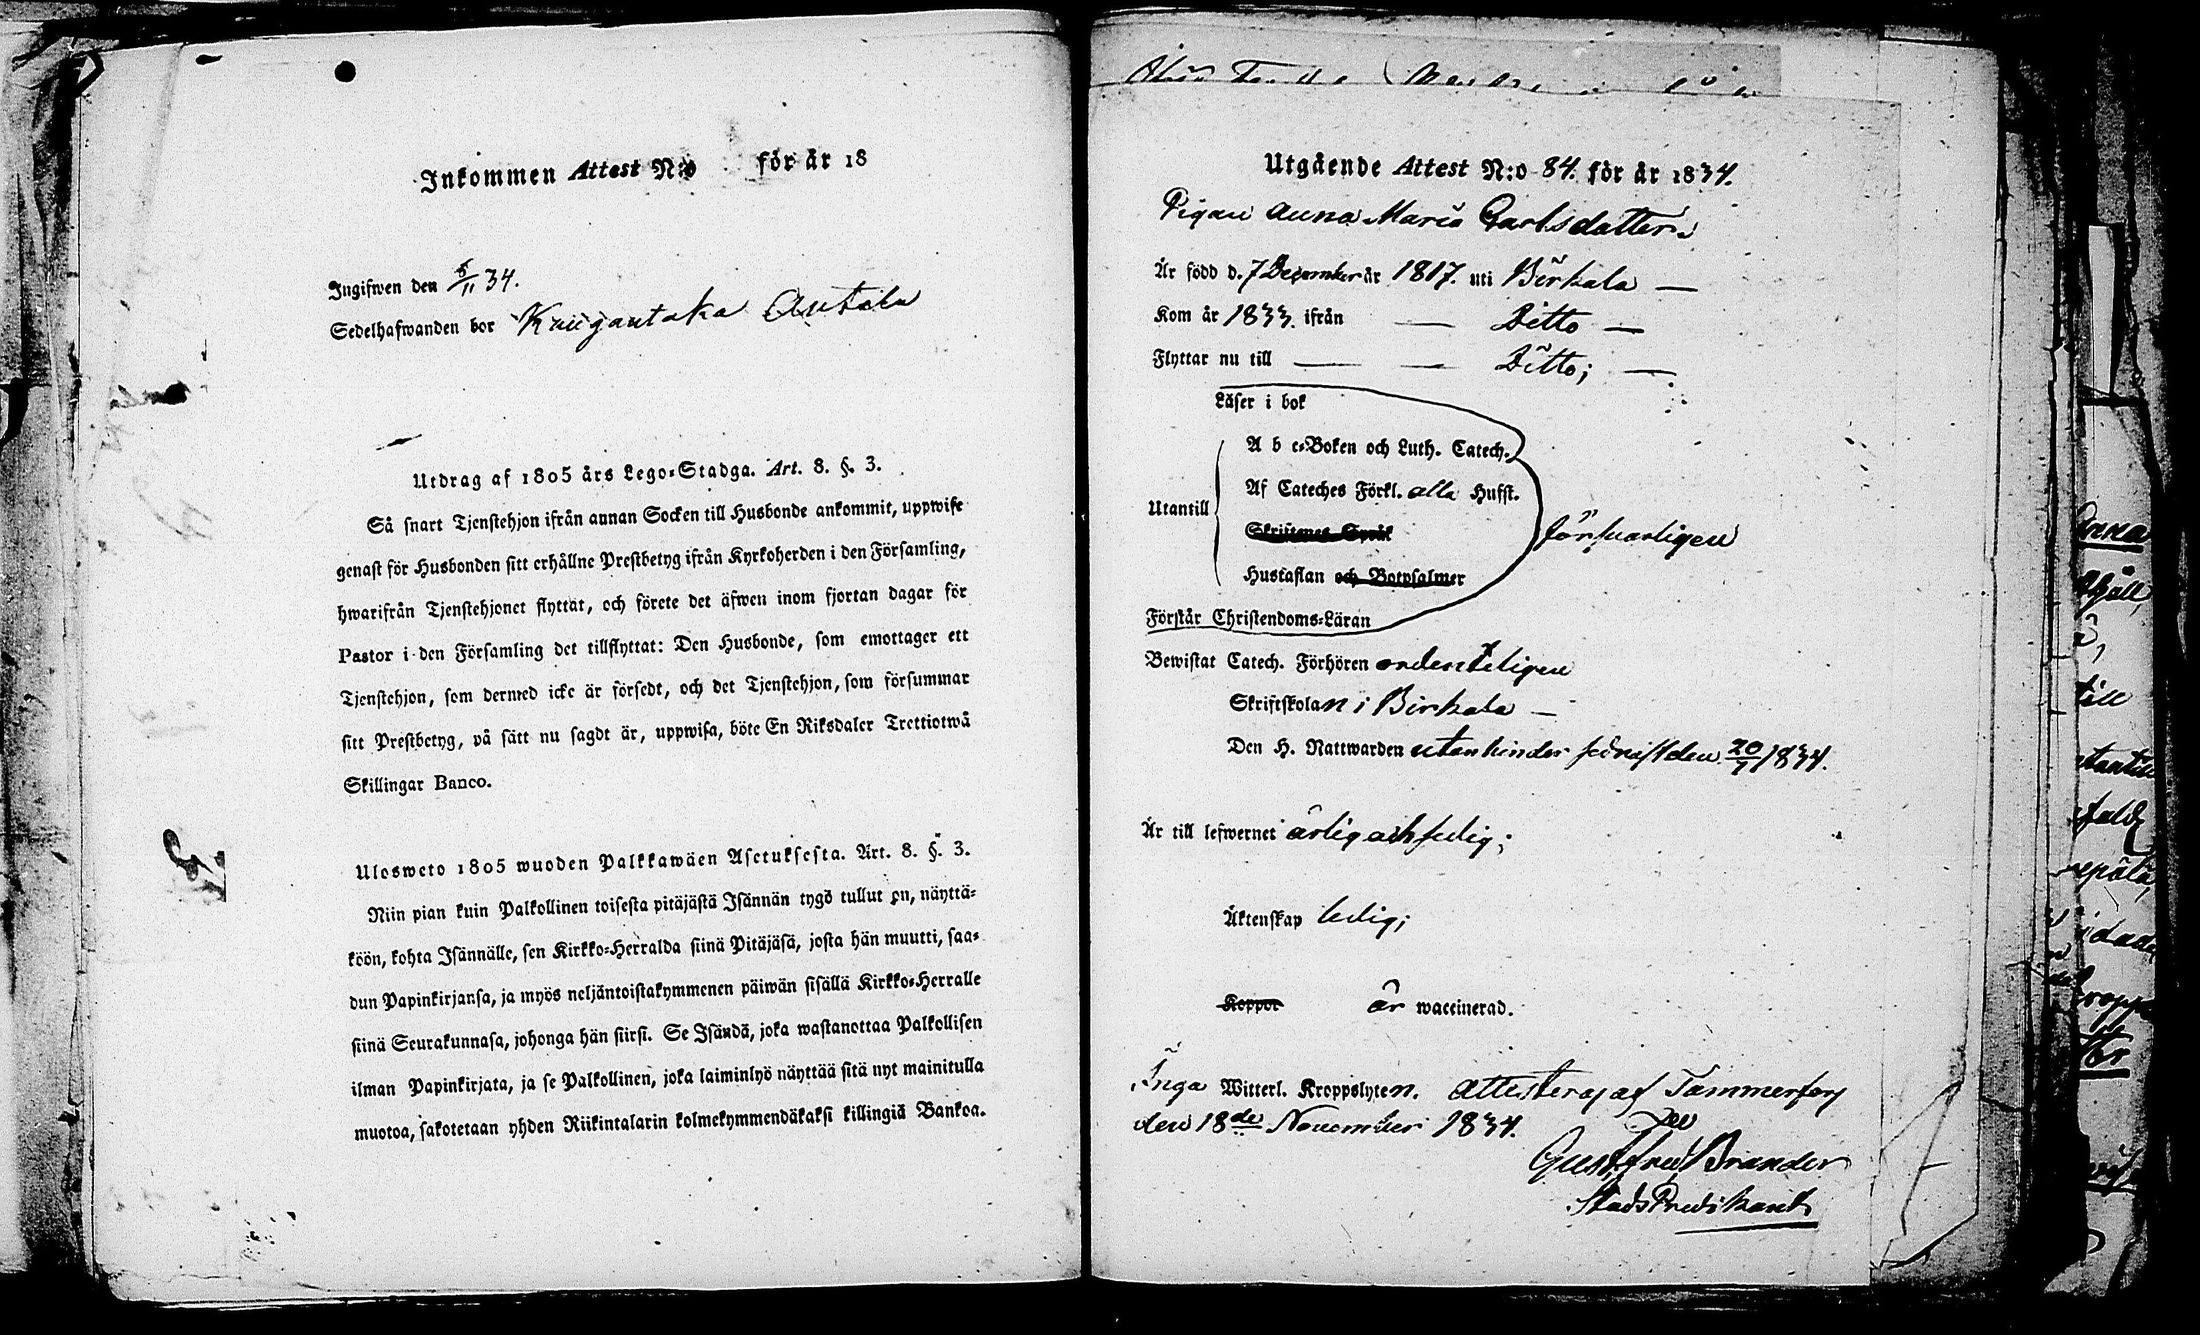 Inkommen Attest N:o för år 18
Ingifwen den 5/11 34.
Sedelhafwanden bor Antala
Utdrag af 1805 års Lego-Stadga. Art. 8. §. 3.
Så snart Tjenstehjon ifrån annan Socken till Husbonde ankommit, uppwise
genast för Husbonden sitt erhållne Prestbetyg ifrån Kyrkoherden i den Församling,
hwarifrån Tjenstehjonet flyttat, och förete det äfwen inom fjortan dagar för
Pastor i den Församling det tillflyttat: Den Husbonde, som emottager ett
Tjenstehjon, som dermed icke är försedt, och det Tjenstehjon, som försummar
sitt Prestbetyg, på sätt nu sagdt är, uppwisa, böte En Riksdaler Trettiotwå
Skillingar Banco.
Ulosweto 1805 wuoden Palkkawäen Asetuksesta. Art. 8. §. 3.
Niin pian kuin Palkollinen toisesta pitäjästä Isännän tygö tullut on, näyttä-
köön, kohta Isännälle, sen Kirkko-Herralda siinä Pitäjäsä, josta hän muutti, saa-
dun Papinkirjansa, ja myös neljäntoistakymmenen päiwän sisällä Kirkko-Herralle
siinä Seurakunnasa, johonga hän siirsi. Se Isändä, joka wastanottaa Palkollisen
ilman Papinkirjata, ja se Palkollinen, joka laiminlyö näyttää sitä nyt mainitulla
muotoa, sakotetaan yhden Riikintalarin kolmekymmendäkaksi killingiä Bankoa.
Utgående Attest N:o 84. för år 1834.
Pigan Anna Maria Carlsdotter
Är född d. 7 December år 1817. uti Birkala —
Kom år 1833. ifrån — Ditto —
Flyttar nu till — — Ditto; —
Läser i bok
A b c-Boken och Luth. Catech.
Af Cateches Förkl. alla Husst.
Utantill
Skriftenes Språk
försvarligen
Hustaflan och Botpsalmer
Förstår Christendoms-Läran
Bewistat Catech. Förhören ordenteligen
Skriftskolan i Birkala —
Den H. Nattwarden utan hinder sednast den 20/7 1834.
Är till lefwernet ärlig och
Äktenskap ledig;
Koppor är waccinerad.
Inga Witterl. Kroppslyten. Attesteras af Tammerfors
den 18de November 1834.
Gust. Fred. Brander
StadsPredikant
Anna
till